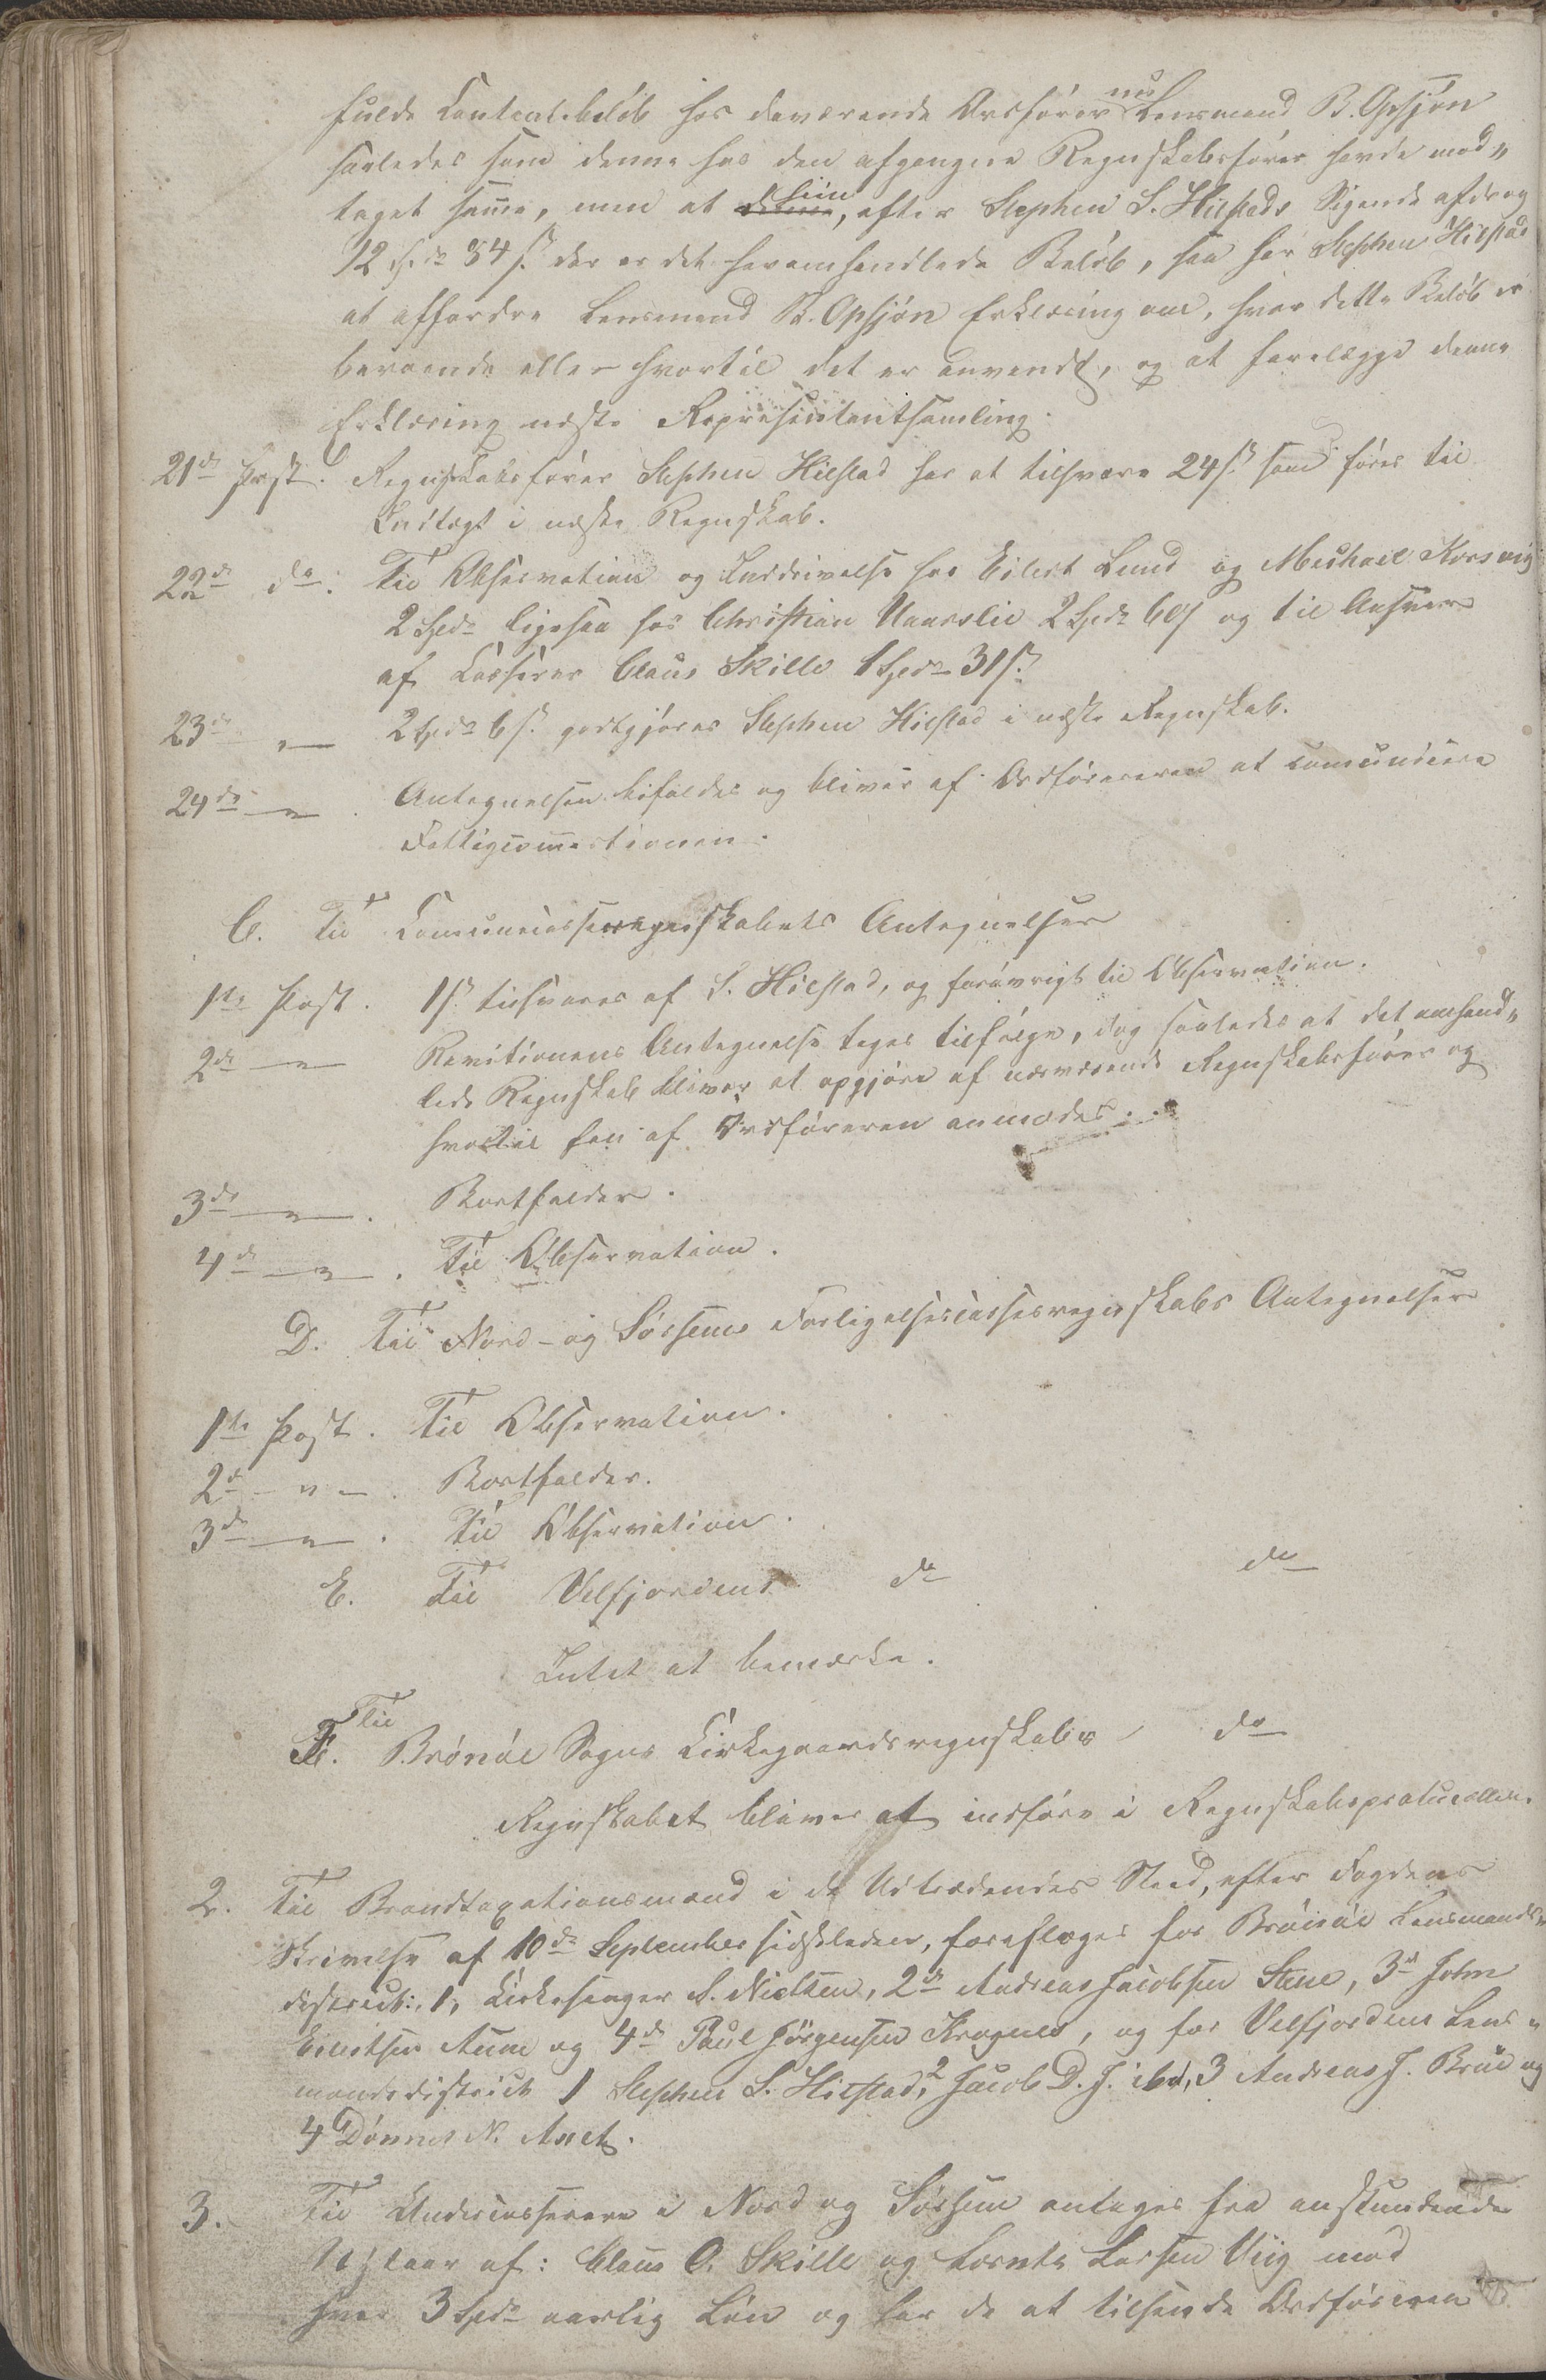 fulde Contantbeløb hos daværende Ordfører nu Lensmand B. Opsjøn
saaledes som denne hos den afgangne Regnskabsfører havde mod„
taget samme, men at denne Siin, efter Stephen S. Hilstads Sigende afdrog
12 Spd 54 s. der er det heromhandlede Beløb, saa har Stephen Hilstad
at affordre Lensmand B. Opsjøn Erklæring om, hvor dette Beløb er
beroende eller hvortil det er anvendt, og at forelægge denne
Erklæring næste Repræsentantsamling.
21de Post. Regnskabsfører Stephen Hilstad har at tilsvare 24 s. som føres til
Indtægt i næste Regnskab.
22de do. Til Observation og Inddrivelse hos Eilert Lund og Michael Horsvig
2 Spd ligesaa hos Christian Vaarslie 2 Spd 60 s og til Ansvar
af Casserer Claus Skille 1 Spd 31 s.
23de „ 2 Spd 6 s. godtgjøres Stephen Hilstad i næste Regnskab.
24de „ . Antegnelsen bifaldes og bliver af Ordføreren at communicere
Fattigcommissionen.
C. Til Communecasseregnskabets Antegnelser
1ste Post. 1 s. tilsvares af S. Hilstad, og forøvrigt til Observation.
2de „ Revisionens Antegnelse tages tilfølge, dog saaledes at det omhand„
lede Regnskab bliver at opgjøre af nærværende Regnskabsfører og
hvortil han af Ordføreren anmodes.
3de „ . Bortfalder.
4de „ . Til Observation.
D. Til Nord- og Sørsems Forligelsescasseregnskabs Antegnelser
1ste Post. Til Observation.
2de „ . Bortfalder.
3de „ . Til Observation.
E. Til Velfjordens do do
Intet at bemærke.
F. Til Brønøe Sogns Kirkegaardsregnskabs do
Regnskabet bliver at indføre i Regnskabsprotocollen.
2. Til Brandtaxationsmænd i de Udtrædendes Sted, efter Fogdens
Skrivelse af 10de September sidstleden, foreslaaes for Brønøe Lensmands„
district: 1, Kirkesanger S. Nielsen, 2de Andreas Jacobsen Stene, 3de John
Eilertsen Aune og 4de Paul Jørgensen Krognes, og for Velfjordens Lens„
mandsdistrict 1 Stephen S. Hilstad, 2 Jacob D. J. ibd, 3 Andreas J. Brue og
4 Dønnes N. Anet.
3. Til Undercasserere i Nord og Sørsem antages fra anstundende
Nytaar af: Claus O. Skille og Lornts Larsen Viig mod
hver 3 Spd aarlig Løn og har de at tilsende Ordføreren